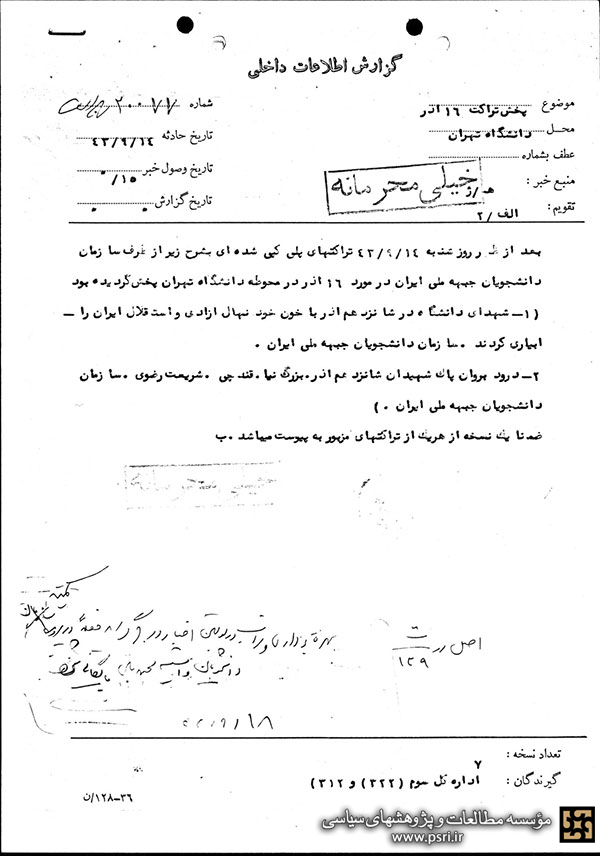 گزارش اطلاعات داخلی
موضوع پخش تراکت ۱۶ آذر
محل دانشگاه تهران
عطف بشماره
منبع خبر :
تقویم : الف /۲
شماره ۲۰۰۷۷
تاریخ حادثه ۴۳/۹/۱۴
تاریخ وصول خبر ۱۵/
تاریخ گزارش
خیلی محرمانه
بعد از ظهر روز شنبه ۴۳/۹/۱۴ تراکتهای پلی کپی شده ای بشرح زیر از طرف سازمان
دانشجویان جبهه ملی ایران در مورد ۱۶ اذر در محوطه دانشگاه تهران پخش گردیده بود
(۱ــ شهدای دانشگاه در شانزدهم اذر با خون خود نهال ازادی و استقلال ایران را ــ
ابیاری کردند . سازمان دانشجویان جبهه ملی ایران .
۲ــ درود بروان پاك شهیدان شانزدهم اذر . بزرگ نیا . قندچی . شریعت رضوی . سازمان
دانشجویان جبهه ملی ایران . )
ضمنا یك نسخه از هریك از تراکتهای مزبور به پیوست میباشد . ب
اصل در ت/۱۲۹
۱۸/۹/
تعداد نسخه : ۷
گیرندگان : اداره کل سوم (۳۲۲) و (۳۱۲)
۳۶–۱۲۸/ن
مؤسسه مطالعات و پژوهشهای سیاسی
www.psri.ir